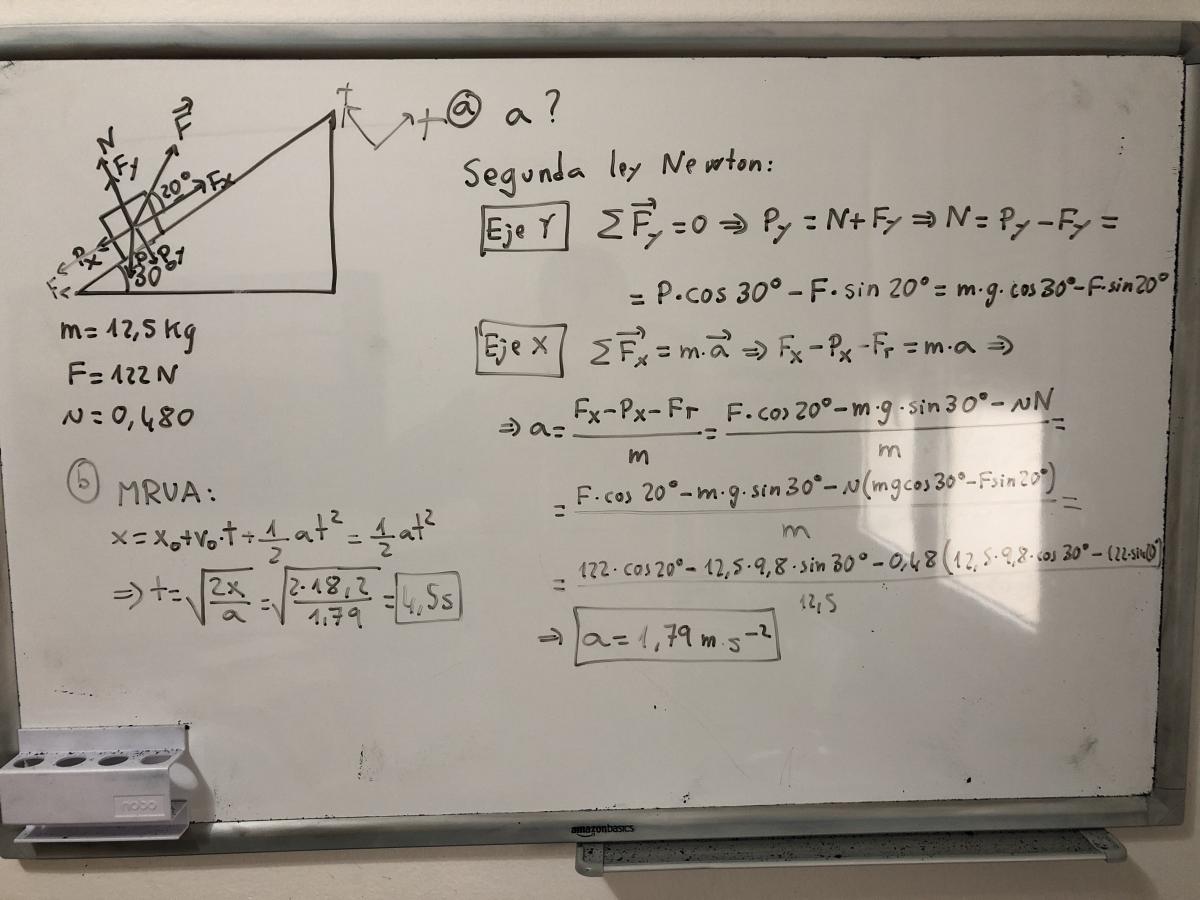 N
F⃗
Fy
20°
Fx
+
+
Px
P
Py
30
Fr
m = 12,5 Kg
F = 122 N
μ = 0,480
ⓐ a?
Segunda ley Newton:
Eje Y ΣF⃗y = 0 ⇒ Py = N + Fy ⇒ N = Py - Fy =
= P·cos 30° - F·sin 20° = m·g·cos 30° - F·sin 20°
Eje X ΣF⃗x = m·a⃗ ⇒ Fx - Px - Fr = m·a ⇒
⇒ a = (Fx - Px - Fr)/m = (F·cos 20° - m·g·sin 30° - μN)/m =
= (F·cos 20° - m·g·sin 30° - μ(mg cos 30° - F sin 20°))/m =
= (122·cos 20° - 12,5·9,8·sin 30° - 0,48(12,5·9,8·cos 30° - 122·sin 20°))/12,5
⇒ a = 1,79 m·s⁻²
ⓑ MRUA:
x = x₀ + v₀·t + 1/2 at² = 1/2 at²
⇒ t = √(2x/a) = √(2·18,2/1,79) = 4,5s
nobo
amazonbasics